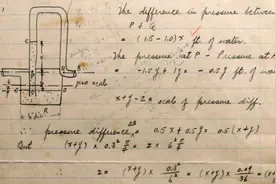 The difference in pressure between
P + Q
= (1.5 - 1.0)x ft. of water.
The pressure at P - Pressure at
= -1.5y + 1y = -0.5y ft. of
x+y-z = scale of pressure diff.
∴ pressure difference = 0.5x + 0.5y = 0.5(x+y)
But (x+y) × 0.3² π/4 = z × 6² π/4
∴ z = (x+y) × 0.3²/6² = (x+y) × 0.09/36 =